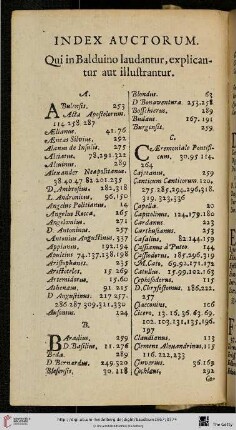 INDEX AUCTORUM.
Qui in Balduino laudantur, explican-
tur aut illustrantur.
A.
Abulensis. 253
Acta Apostolorum.
114. 258. 287
Ælianus. 41. 76
Æneas Silvius. 292
Alanus de Insulis. 275
Alciatus. 78, 291. 322
Alcuinus. 289
Alexander Neapolitanus.
38. 40. 47. 82. 201. 235
D. Ambrosius. 282, 318
L. Andronicus. 96, 150
Angelus Politianus. 14
Angelus Rocca. 265
Angelonius. 271
D. Antoninus. 257
Antonius Augustinus. 337
Appianus. 192. 194
Apuleius. 74. 137. 238. 198
Aristophanes. 235
Aristoteles. 15. 269
Artemidorus. 15. 60
Athenæus. 91. 215
D. Augustinus. 217. 257.
286. 287. 309. 311. 330
Ausonius. 224
B.
Baradius. 259
D. Basilius. 11. 276
Beda. 289
D. Bernardus. 249, 320
Blesensis. 30. 118
Blondus. 63
D. Bonaventura. 253. 258
Bosschierus. 289
Budæus. 167. 191
Burgensis. 259
C.
Cæremoniale Pontifi-
cum. 30. 95. 114.
264
Cajetanus. 259
Canticum Canticorum. 204.
275. 285. 294. 296. 318.
319. 323. 336
Capella. 20
Capitolinus. 124. 179. 180
Cardanus. 223
Carthusianus. 253
Casalius. 82, 144. 159
Cassianus à Puteo. 144
Cassiodorus. 185. 296. 319
M. Cato. 69. 92. 171. 172
Catullus. 15. 99. 102. 163
Cephisodorus. 115
D. Chrysostomus. 186, 222.
257
Ciaconius. 106
Cicero. 13. 16. 36. 63. 69.
102. 103. 131. 135. 196.
197
Claudianus. 113
Clemens Alexandrinus. 115
116. 222. 233
Clenardus. 36. 169
Cochlæus. 292